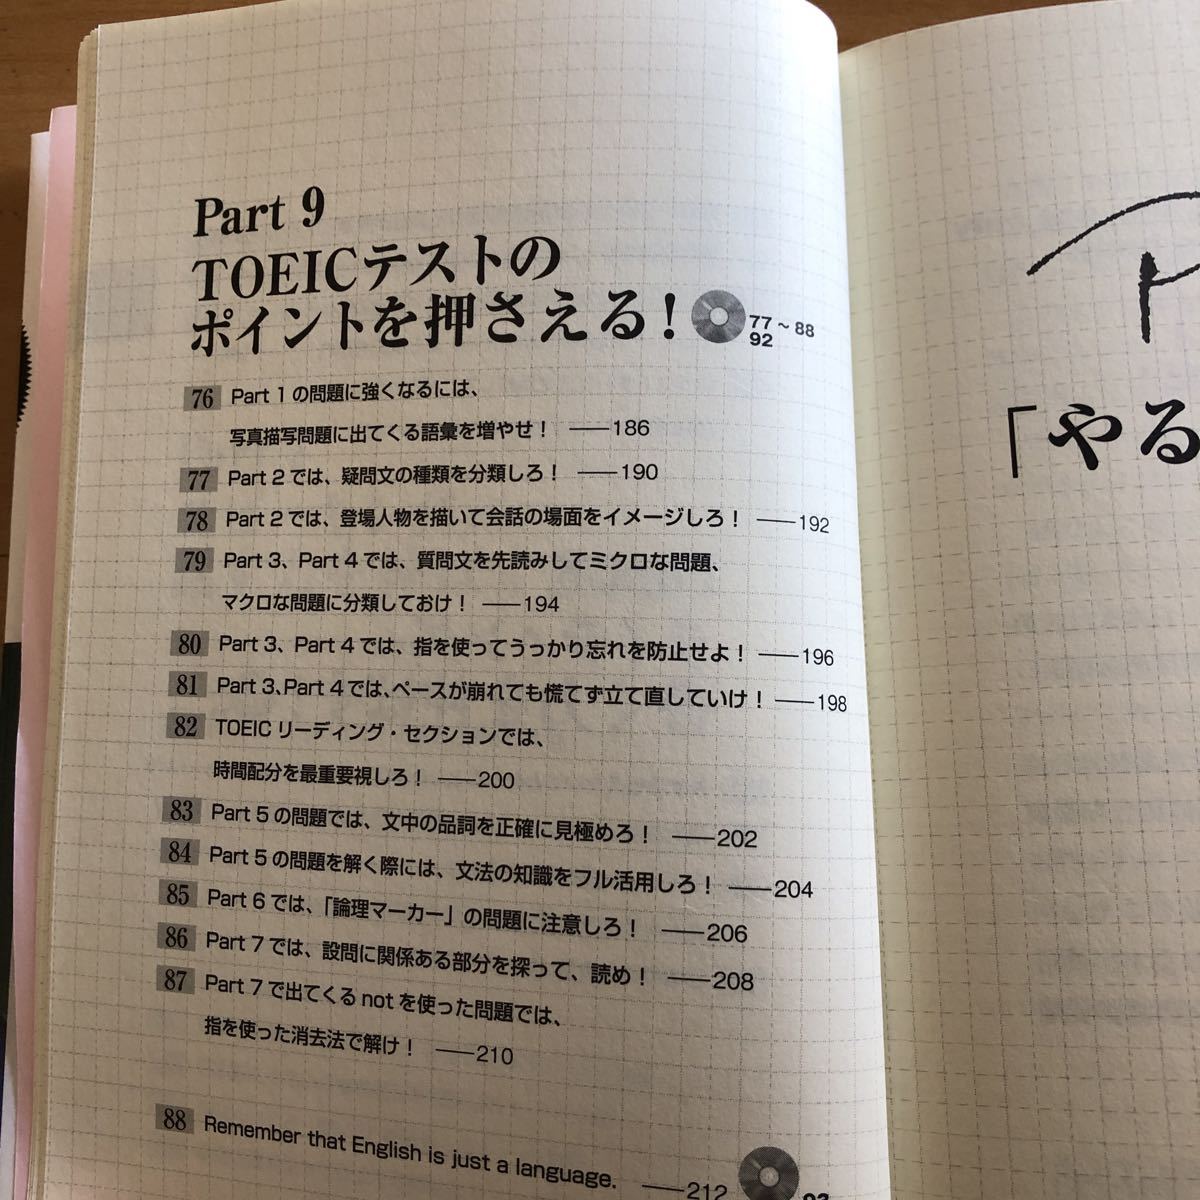 Part 9
TOEICテストの
ポイントを押さえる！ 77～88
92
76 Part 1の問題に強くなるには、
写真描写問題に出てくる語彙を増やせ！ ――186
77 Part 2では、疑問文の種類を分類しろ！ ――190
78 Part 2では、登場人物を描いて会話の場面をイメージしろ！ ――192
79 Part 3、Part 4では、質問文を先読みしてミクロな問題、
マクロな問題に分類しておけ！ ――194
80 Part 3、Part 4では、指を使ってうっかり忘れを防止せよ！ ――196
81 Part 3、Part 4では、ペースが崩れても慌てず立て直していけ！ ――198
82 TOEIC リーディング・セクションでは、
時間配分を最重要視しろ！ ――200
83 Part 5の問題では、文中の品詞を正確に見極めろ！ ――202
84 Part 5の問題を解く際には、文法の知識をフル活用しろ！ ――204
85 Part 6では、「論理マーカー」の問題に注意しろ！ ――206
86 Part 7では、設問に関係ある部分を探って、読め！ ――208
87 Part 7で出てくるnotを使った問題では、
指を使った消去法で解け！ ――210
88 Remember that English is just a language. ――212
「やる